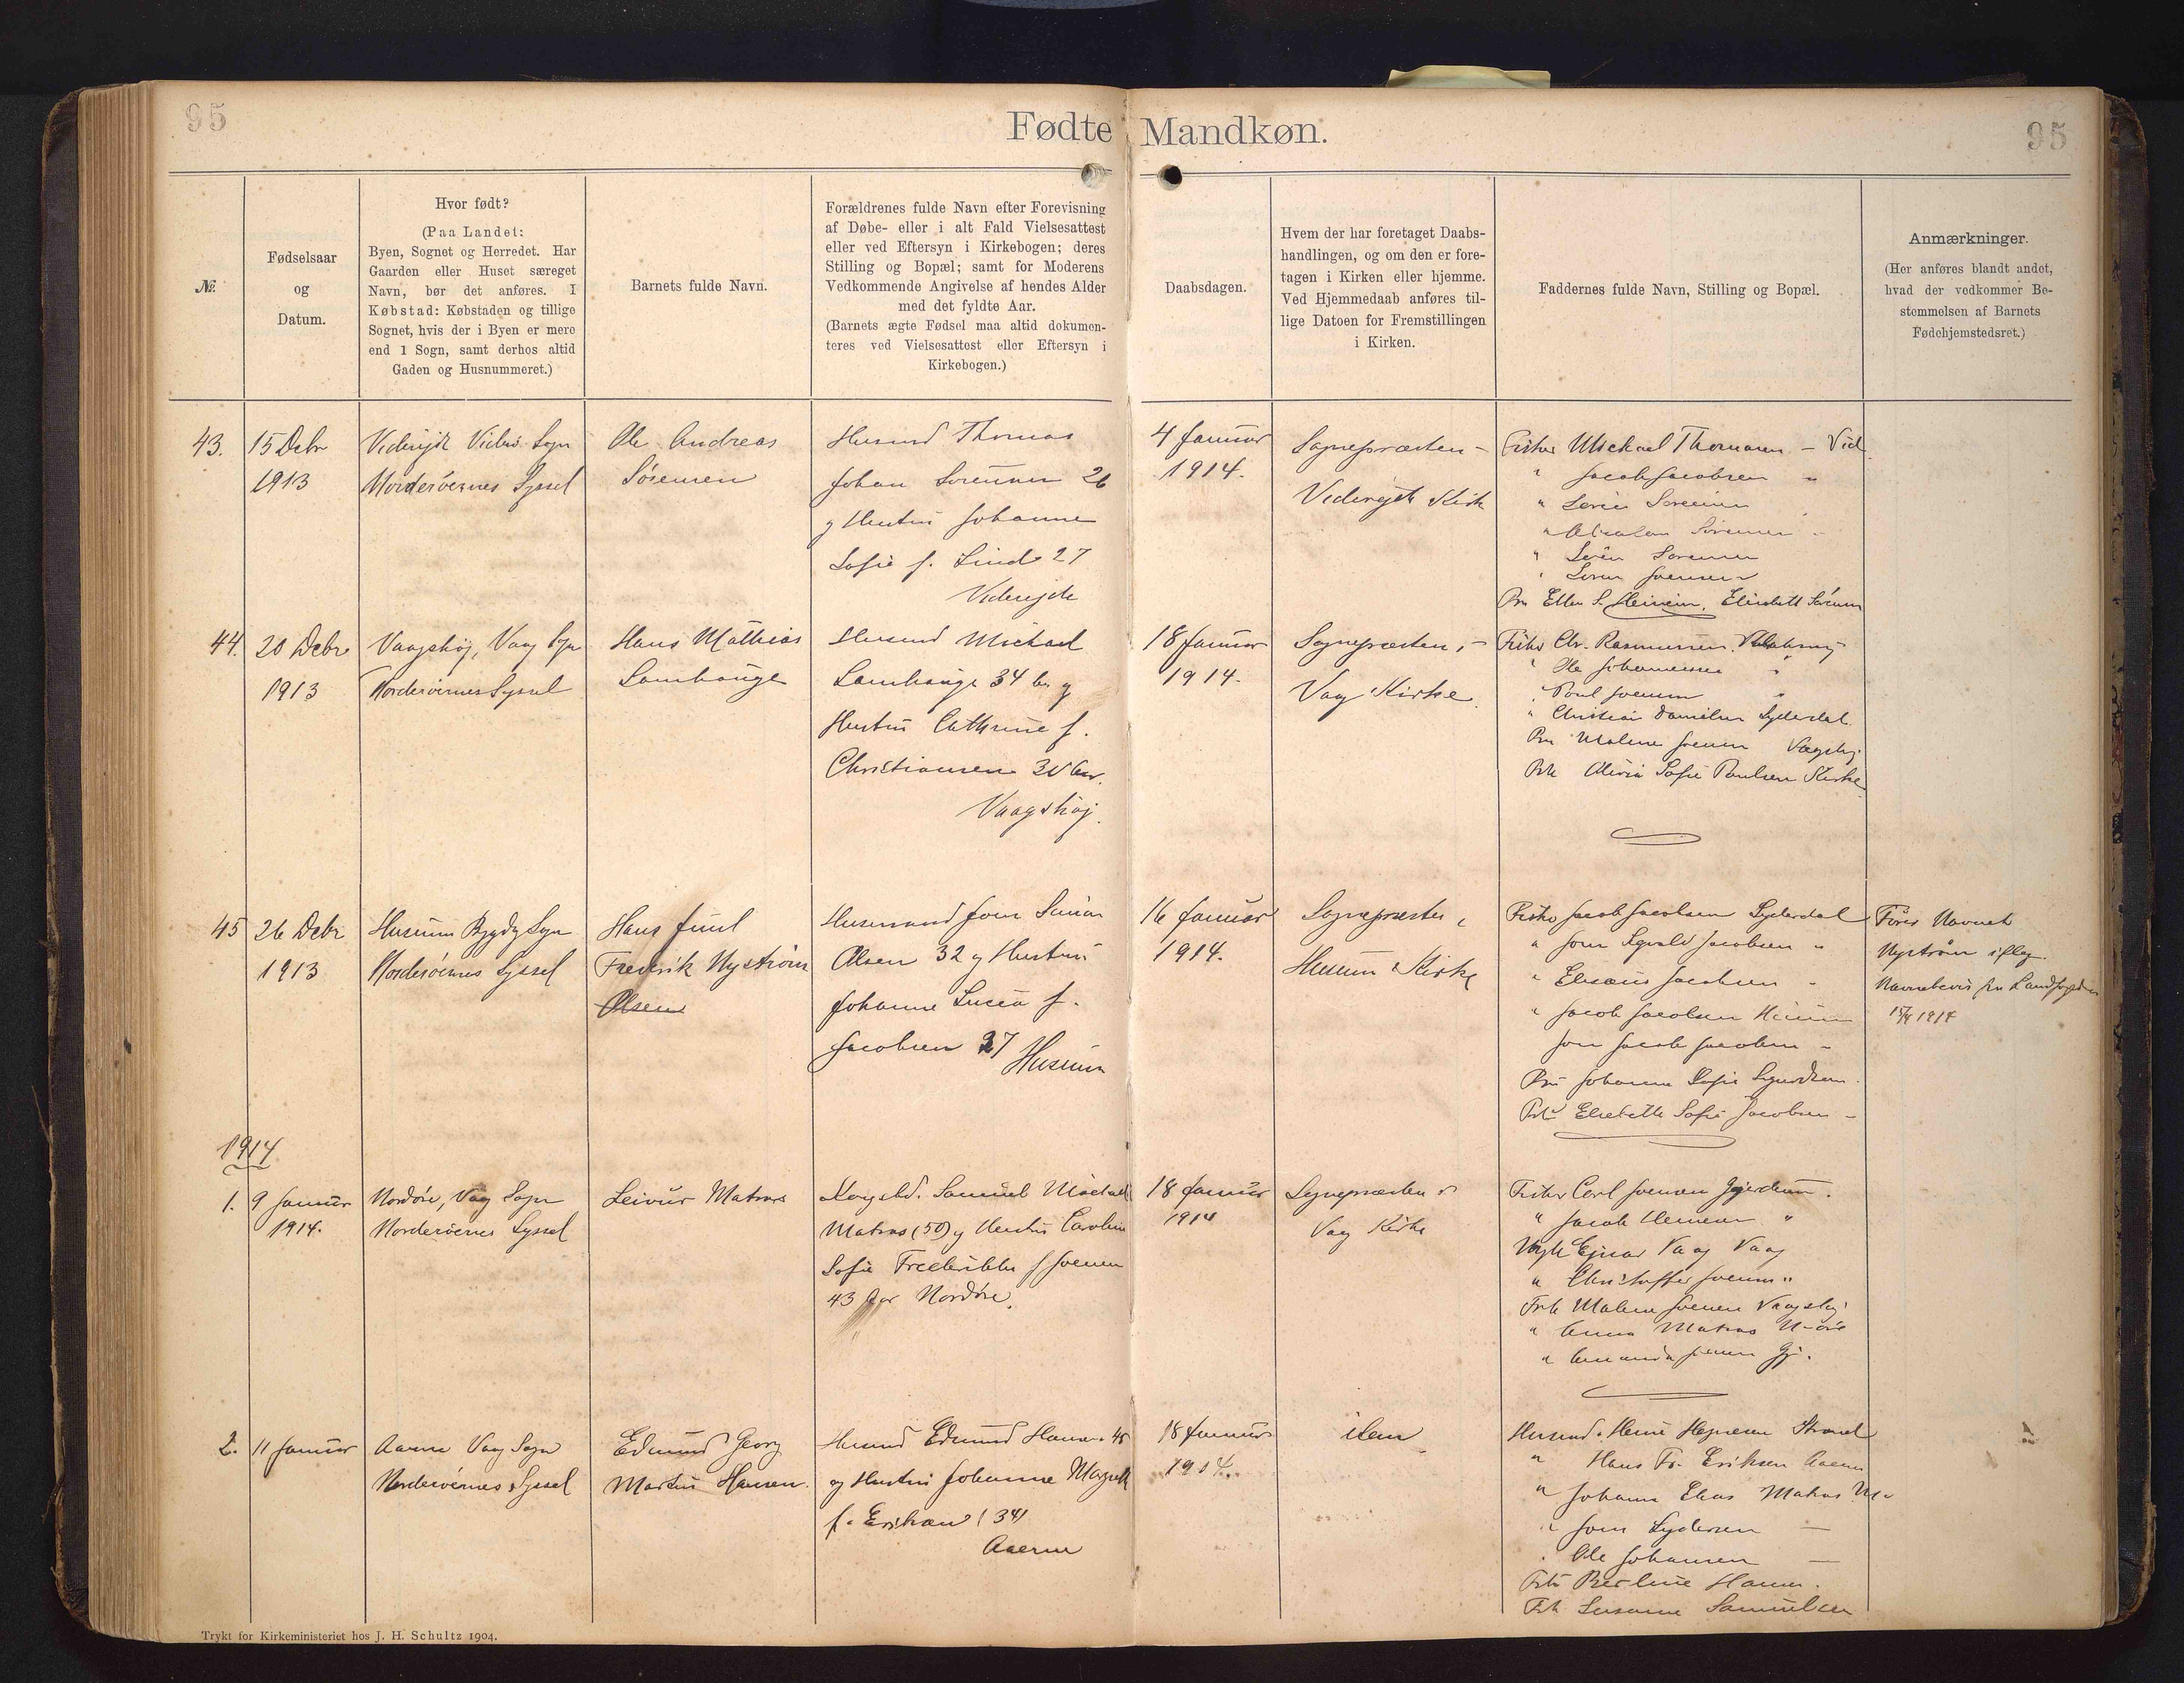 95
Fødte Mandkøn.
95
№.
Fødselsaar
og
Datum.
Hvor født?
(Paa Landet:
Byen, Sognet og Herredet. Har
Gaarden eller Huset særeget
Navn, bør det anføres. I
Købstad: Købstaden og tillige
Sognet, hvis der i Byen er mere
end 1 Sogn, samt derhos altid
Gaden og Husnummeret.)
Barnets fulde Navn.
Forældrenes fulde Navn efter Forevisning
af Døbe- eller i alt Fald Vielsesattest
eller ved Eftersyn i Kirkebogen; deres
Stilling og Bopæl; samt for Moderens
Vedkommende Angivelse af hendes Alder
med det fyldte Aar.
(Barnets ægte Fødsel maa altid dokumen-
teres ved Vielsesattest eller Eftersyn i
Kirkebogen.)
Daabsdagen.
Hvem der har foretaget Daabs-
handlingen, og om den er fore-
tagen i Kirken eller hjemme.
Ved Hjemmedaab anføres til-
lige Datoen for Fremstillingen
i Kirken.
Faddernes fulde Navn, Stilling og Bopæl.
Anmærkninger.
(Her anføres blandt andet,
hvad der vedkommer Be-
stemmelsen af Barnets
Fødehjemstedsret.)
43.
15 Debr
1913
Viderejde Viderø Sogn
Norderøernes Syssel
Ole Andreas
Sørensen
Husmd Thomas
Johan Sørensen 26
og Hustru Johanne
Sofie f. Lind 27
Viderejde
4 Januar
1914.
Sognepræsten -
Viderejde Kirke
Fisker Michael Thomasen - Vid
" Jacob Jacobsen "
" Sørensen
" Absalon Sørensen "
" Søren Sørensen
" Søren Joensen
Ellen S. Heinesen, Elisabeth Sørensen
44.
20 Debr
1913
Vaagshøj, Vaag Sogn
Norderøernes Syssel
Hans Mathias
Lamhauge
Husmd Michael
Lamhauge 34 og
Hustru Cathrine f.
Christiansen 30 Aar.
Vaagshøj.
18 Januar
1914.
Sognepræsten, -
Vag Kirke.
Fisker Chr. Rasmussen
" Ole Johannessen "
" Poul Joensen "
" Christian Danielsen Syderdal.
Malene Joensen Vagshøj
Olivia Sofie Poulsen Kirke
45
26 Debr
1913
Husum Sogn
Norderøernes Syssel
Hans Juul
Frederik Nystrøm
Olsen
Husmand Joen Simon
Olsen 32 og Hustru
Johanne Lucia f.
Jacobsen 37
Husum
16 Januar
1914.
Sognepræsten,
Husum Kirke
Fisker Jacob Jacobsen Syderdal
" Joen Jacobsen "
" Elisæus Jacobsen "
" Jacob Jacobsen Husum
Joen Jacob Jacobsen "
Johanne Sofie
Elsebeth Sofie Jacobsen -
Fører Navnet
Nystrøm ifølge
Navnebevis fra Landfogden
1914
1914
1.
9 Januar
1914.
Nordøre, Vaag Sogn
Norderøernes Syssel
Leivur Matras
Kongsbd. Samuel Michael
Matras (50) og Hustru Caroline
Sofie Frederikke f Joensen
43 Aar Nordøre.
18 Januar
1914
Sognepræsten
Vag Kirke
Fisker Carl Joensen Gjerdum.
" Jacob Heinesen "
Ejnar Vaag Vaag
" Christoffer Joensen "
Frk Malene Joensen Vaagshøj
" Anna Matras N-øre
" Amanda Joensen Gj.
2.
11 Januar
Aaerne Vaag Sogn
Norderøernes Syssel
Edmund Georg
Martin Hansen.
Husmd Edmund Hansen 45
og Hustru Johanne Magreth
f. Eriksen (34)
Aaerne
18 Januar
1914.
idem
Husmd. Strand
" Hans Fr. Eriksen Aaerne
" Johann Elias Matras
" Joen Lydersen -
" Ole Johansen -
Frk Berline Hansen.
Frk Susanne Samuelsen
Trykt for Kirkeministeriet hos J. H. Schultz 1904.